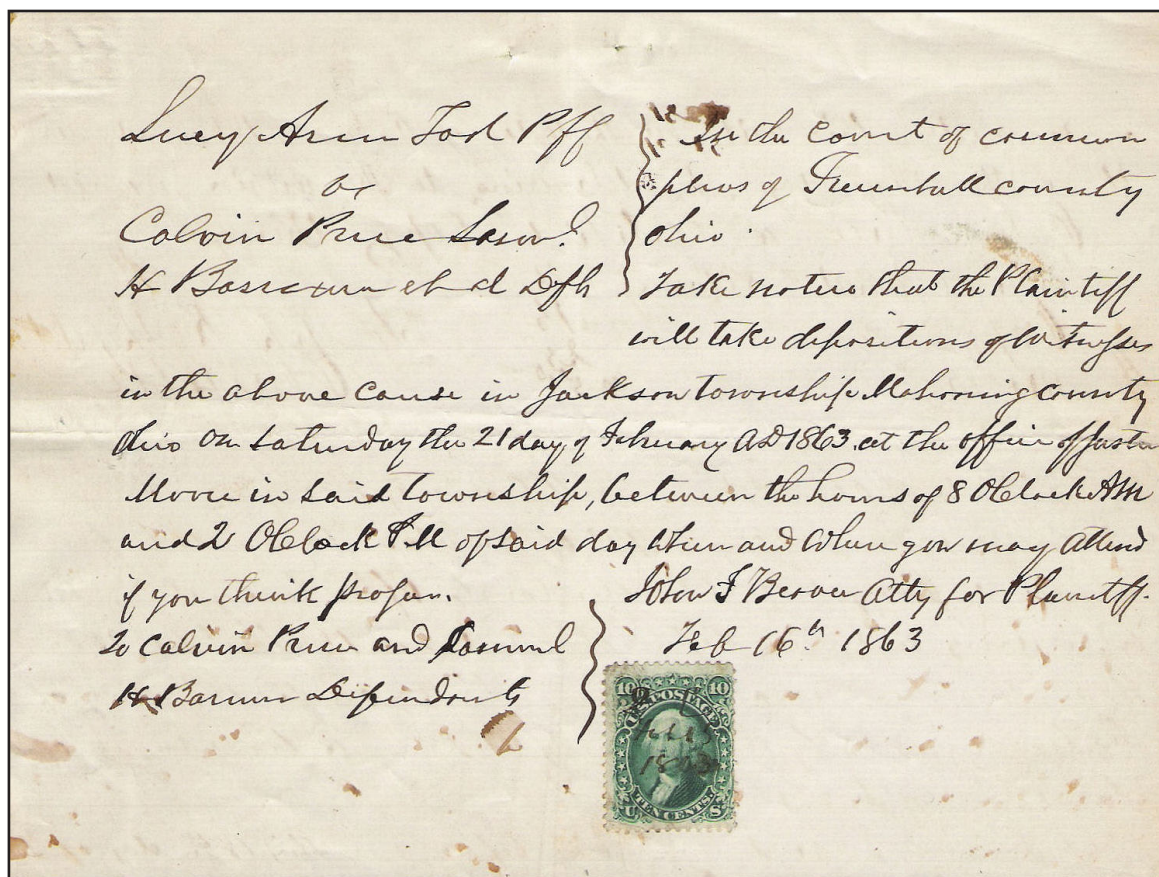 Lucy Ann Tod Pff
vs
Calvin Price Saml.
H Barnum et al Dfts
In the court of common
pleas of Trumbull county
Ohio.
Take notice that the Plaintiff
will take depositions of Witnesses
in the above cause in Jackson township Mahoning county
Ohio on Saturday the 21 day of February AD 1863 at the office of
Moore in said township, between the hours of 8 OClock AM
and 2 OClock P.M of said day when and where you may attend
if you think proper.
John F Beaver Atty for Plaintiff.
Feb 16th 1863
To Calvin Price and Samuel
H Barnum Defendants
10 10
U.S. POSTAGE
Feb
TEN CENTS
U S